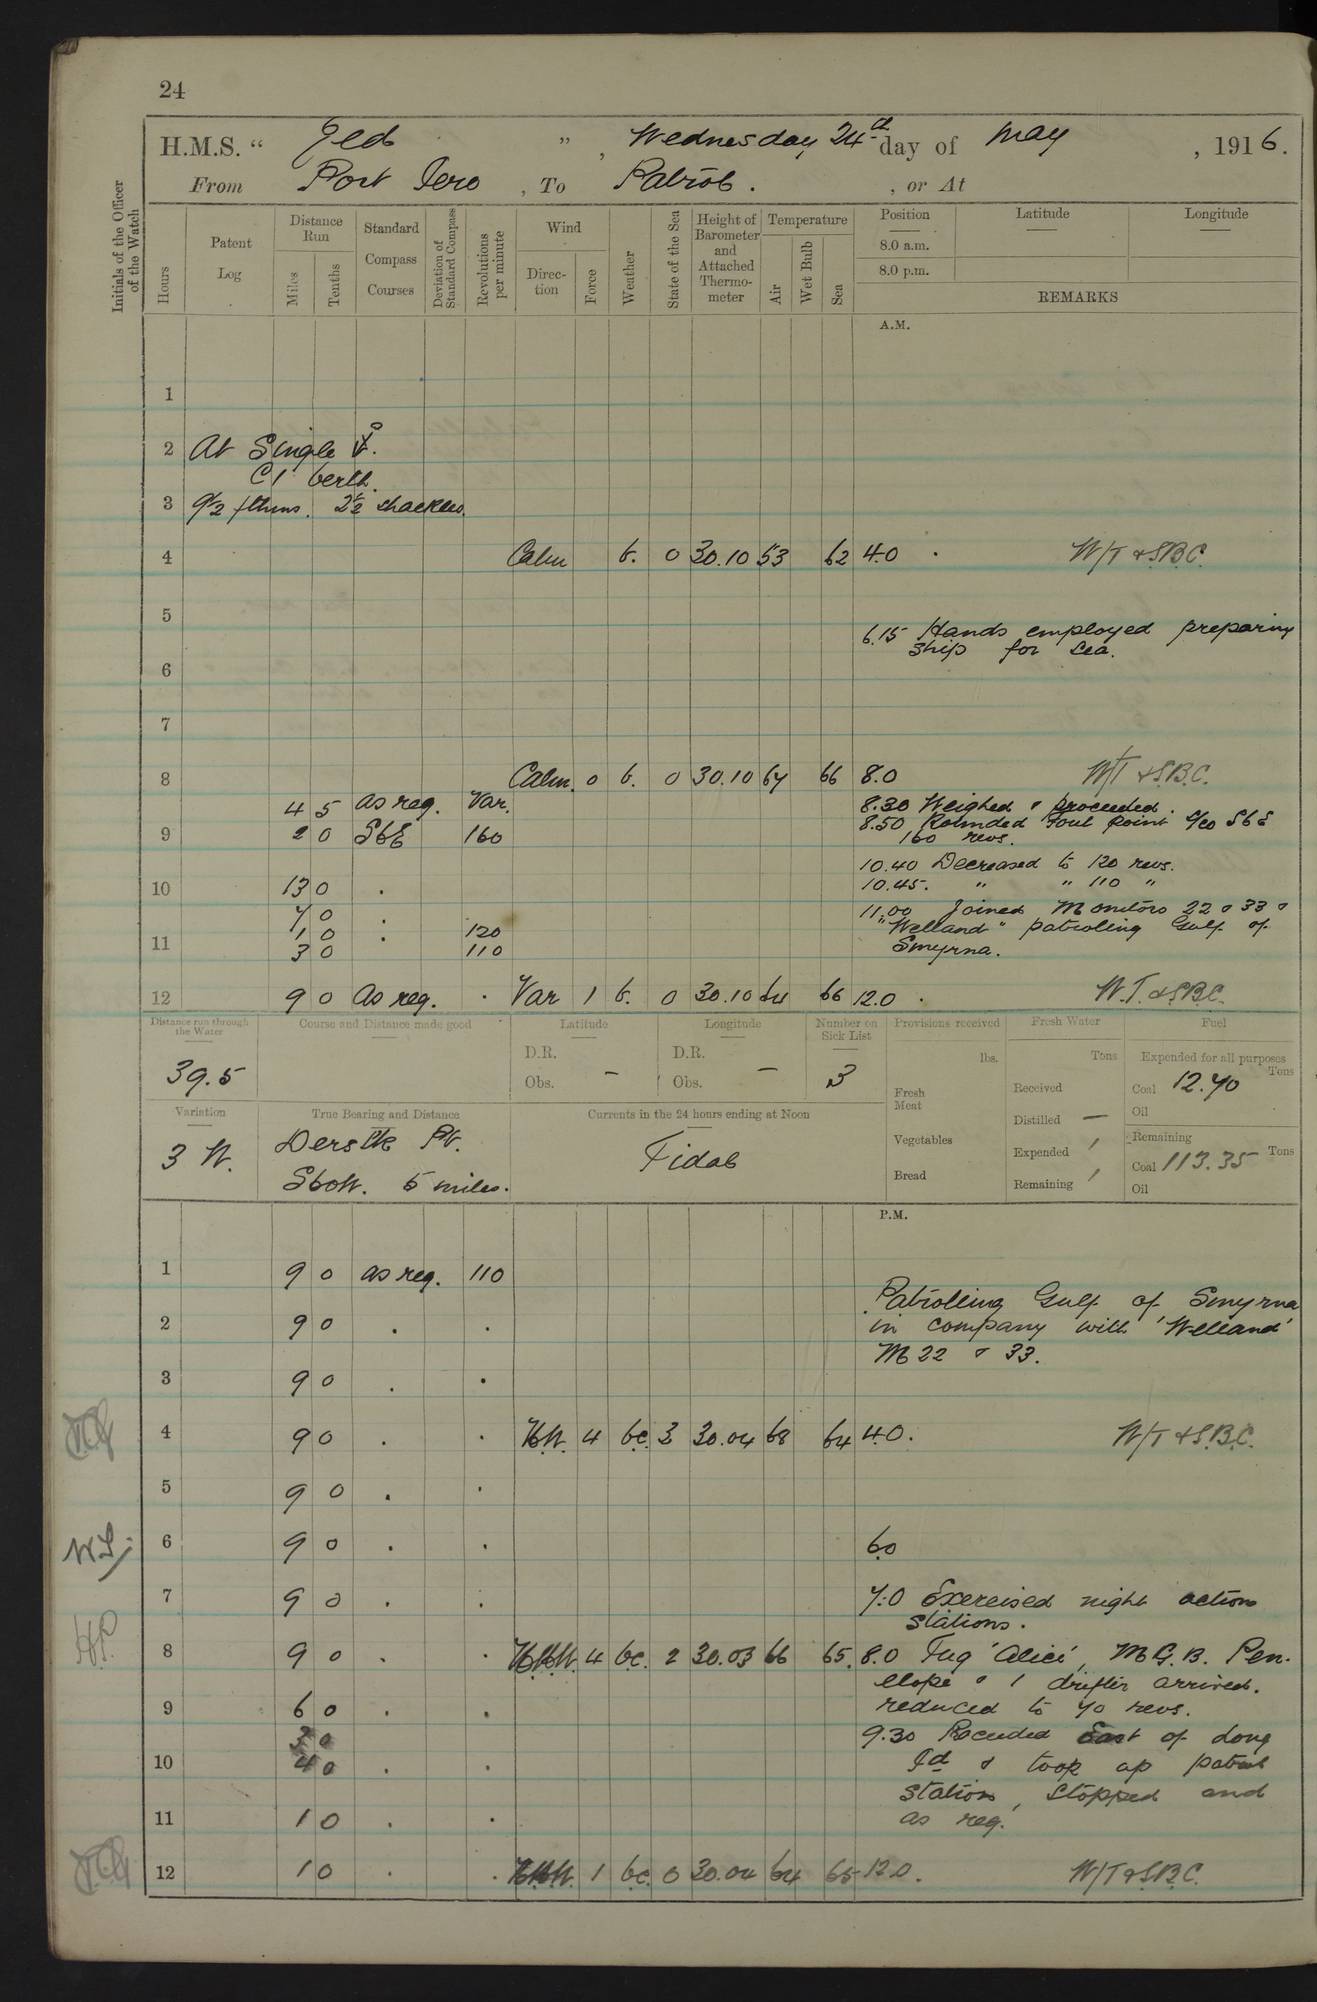 24
H.M.S. " Jed " , Wednesday, 24th day of May , 1916.
From Port Iero , To Patrol . , or At
Initials of the Officer of the Watch
Hours
Patent Log
Distance Run
Miles
Tenths
Standard Compass Courses
Deviation of Standard Compass
Revolutions per minute
Wind
Direc- tion
Force
Weather
State of the Sea
Height of Barometer and Attached Thermo- meter
Temperature
Air
Wet Bulb
Sea
Position
8.0 a.m.
8.0 p.m.
Latitude
Longitude
REMARKS
A.M.
1
2 At Single
C1 berth.
3 9½ fthms. 2½ shackles.
4 Calm b. 0 30.10 53 62 4.0 . W/T & S.B.C.
5
6.15 Hands employed preparing
ship for sea.
6
7
8 Calm. 0 b. 0 30.10 64 66 8.0 W/T & S.B.C.
4 5 as req. Var. 8.30 Weighed & proceeded.
9 2 0 SbE 160 8.50 Rounded Foul Point c/co SbE
160 revs.
10.40 Decreased to 120 revs.
10 13 0 . 10.45. " " 110 "
7 0 . 11.00 Joined Monitors 22 & 33 &
1 0 . 120 "Welland" patrolling Gulf of
11 3 0 110 Smyrna.
12 9 0 As req. . Var 1 b. 0 30.10 64 66 12.0 . W.T. & S.B.C.
Distance run through the Water
39.5
Course and Distance made good
Latitude
D.R.
Obs. –
Longitude
D.R.
Obs. –
Number on Sick List
3
Provisions received
lbs.
Fresh Meat
Vegetables
Bread
Fresh Water
Tons
Received
Distilled —
Expended
Remaining
Fuel
Expended for all purposes
Coal 12.70 Tons
Oil
Remaining
Coal 113.35 Tons
Oil
Variation
3 W.
True Bearing and Distance
Pt.
SbW. 5 miles.
Currents in the 24 hours ending at Noon
Tidal
P.M.
1 9 0 as req. 110
Patrolling Gulf of Smyrna
2 9 0 . . in company with 'Welland'
M 22 & 33.
3 9 0 . .
4 9 0 . . N.W. 4 b.c. 3 30.04 68 64 4.0. W/T & S.B.C.
5 9 0 . .
6 9 0 . . 6.0
7 9 0 . . 7.0 Exercised night action
stations.
8 9 0 . . N.N.W. 4 b.c. 2 30.03 66 65. 8.0 Tug 'Alice', M.G.B. Pen-
elope & 1 drifter arrived.
9 6 0 . . reduced to 70 revs.
3 0 9.30 Proceeded East of Long
10 4 0 . . Id & took up patrol
station, stopped and
11 1 0 . . as req.
12 1 0 . . N.N.W. 1 b.c. 0 30.04 64 65 12.0. W/T & S.B.C.